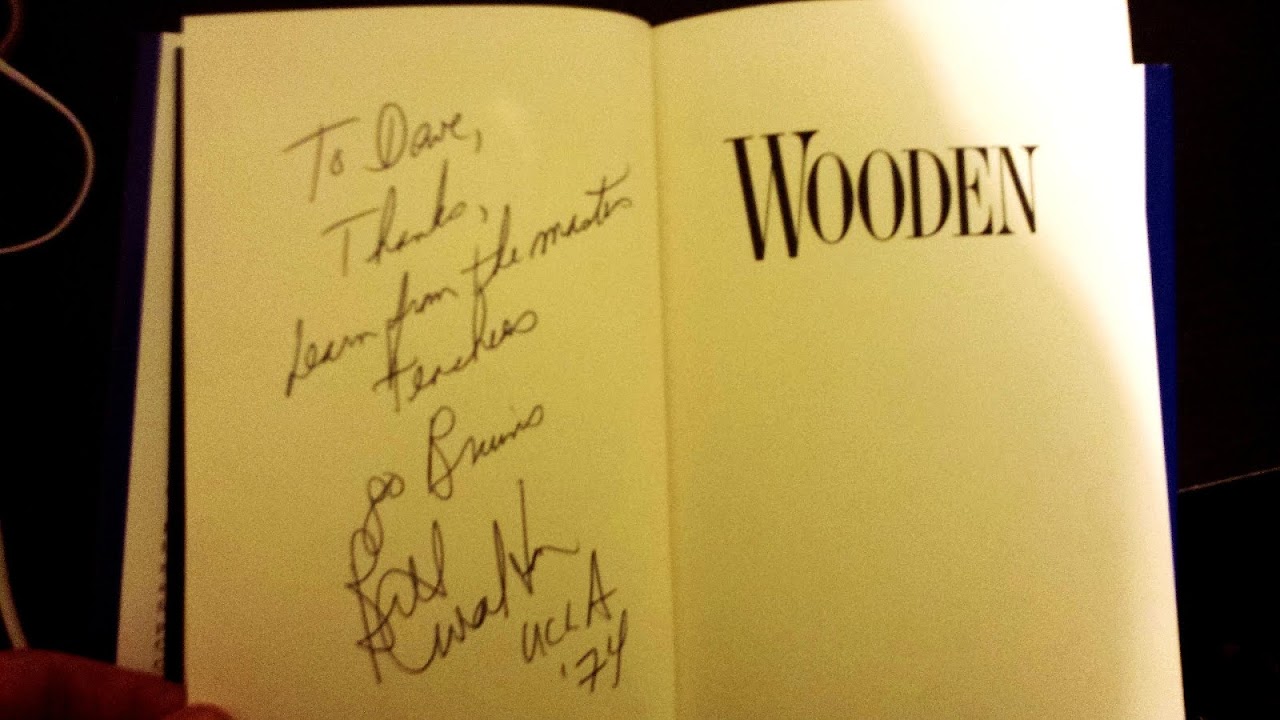 To Dave,
Thanks,
Learn from the master
teachers
go Bruins
Bill Walton
UCLA
'74
WOODEN